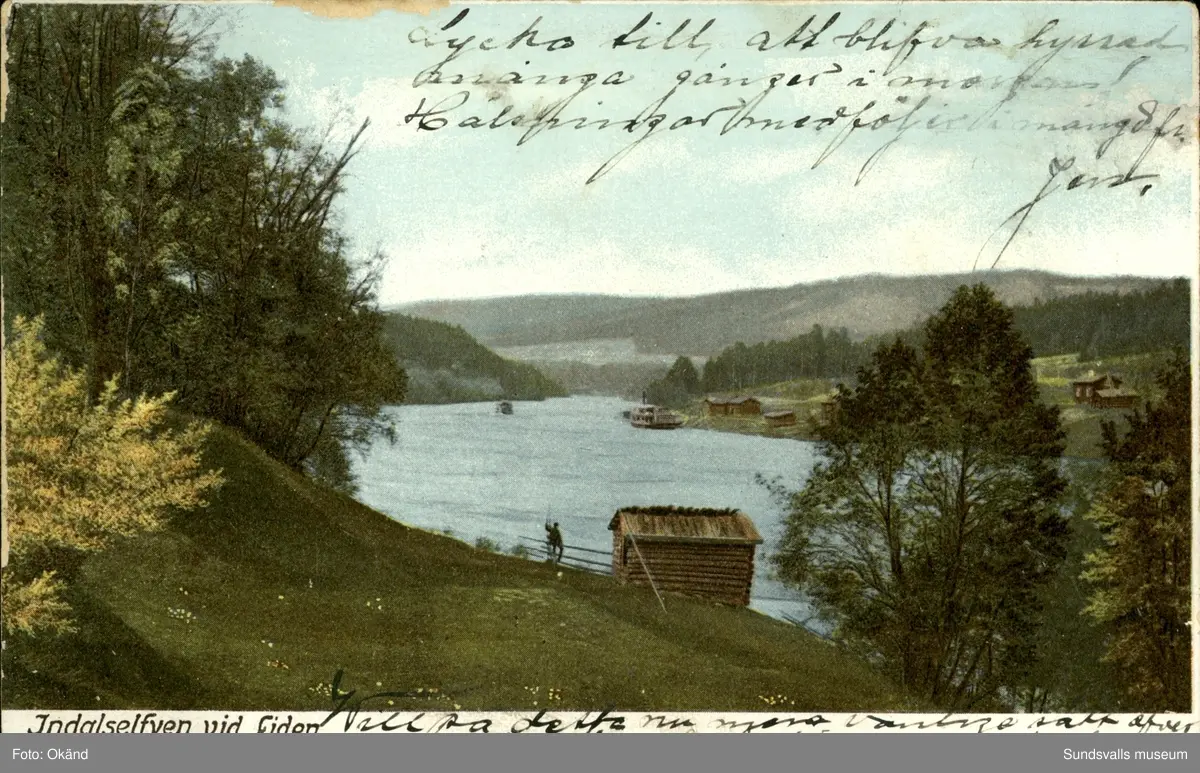 Lycka till, att blifva kyssad
många gånger i morgon!
Hälsningar medföljer i mängd fr.
Jen.
Indalselfven vid Liden
Vill sa detta nu mera vanliga sätt
Foto: Okänd
Sundsvalls museum